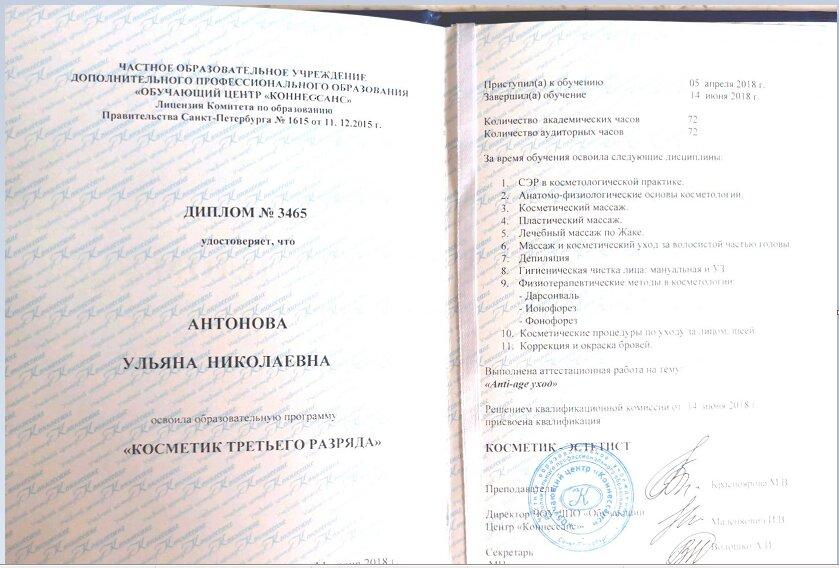 ЧАСТНОЕ ОБРАЗОВАТЕЛЬНОЕ УЧРЕЖДЕНИЕ
ДОПОЛНИТЕЛЬНОГО ПРОФЕССИОНАЛЬНОГО ОБРАЗОВАНИЯ
«ОБУЧАЮЩИЙ ЦЕНТР «КОННЕССАНС»
Лицензия Комитета по образованию
Правительства Санкт-Петербурга № 1615 от 11. 12.2015 г.
ДИПЛОМ № 3465
удостоверяет, что
АНТОНОВА
УЛЬЯНА НИКОЛАЕВНА
освоила образовательную программу
«КОСМЕТИК ТРЕТЬЕГО РАЗРЯДА»
2018 г.
Приступил(а) к обучению 05 апреля 2018 г.
Завершил(а) обучение 14 июня 2018 г.
Количество академических часов 72
Количество аудиторных часов 72
За время обучения освоила следующие дисциплины:
1. СЭР в косметологической практике.
2. Анатомо-физиологические основы косметологии.
3. Косметический массаж.
4. Пластический массаж.
5. Лечебный массаж по Жаке.
6. Массаж и косметический уход за волосистой частью головы
7. Депиляция
8. Гигиеническая чистка лица: мануальная и УЗ
9. Физиотерапевтические методы в косметологии:
- Дарсонваль
- Ионофорез
- Фонофорез
10. Косметические процедуры по уходу за лицом, шеей.
11. Коррекция и окраска бровей.
Выполнена аттестационная работа на тему
«Anti-age уход»
Решением квалификационной комиссии от 14 июня 2018 г.
присвоена квалификация
КОСМЕТИК - ЭСТЕТИСТ
Преподаватель Красноярова М.В.
Директор ЧОУ ДПО «Обучающий
Центр «Коннессанс» И.В.
Секретарь Волошко А.И.